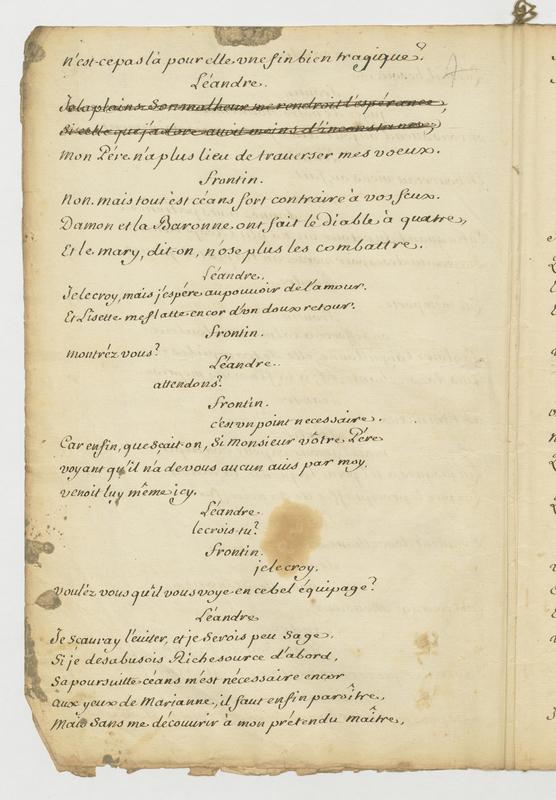 n'est-ce pas là pour elle vne fin bien tragique?
Léandre.
Je la plains. Son malheur me rendroit l'espérance,
Si celle que j'adore auoit moins d'inconstance,
Mon Pére n'a plus lieu de trauerser mes voeux.
Frontin.
Non. mais tout est céans fort contraire à vos feux.
Damon et la Baronne ont fait le diable à quatre,
Et le mary, dit-on, n'ose plus les combattre.
Léandre.
Je le croy, mais j'espére au pouuoir de l'amour.
Et Lisette me flatte encor d'vn doux retour.
Frontin.
montréz vous?
Léandre.
attendons?
Frontin.
c'est vn point necessaire.
Car enfin, que sçait-on, Si Monsieur vôtre Pére
voyant qu'il n'a de vous aucun auis par moy,
venoit luy même icy.
Léandre.
le crois-tu?
Frontin.
je le croy.
voulez vous qu'il vous voye en ce bel équipage?
Léandre
Je sçauray l'euiter, et je Serois peu Sage,
Si je desabusois Richesource d'abord,
Sa poursuitte céans m'est nécessaire encor
Aux yeux de Marianne, il faut enfin paroître,
Mais Sans me découurir à mon prétendu maître,